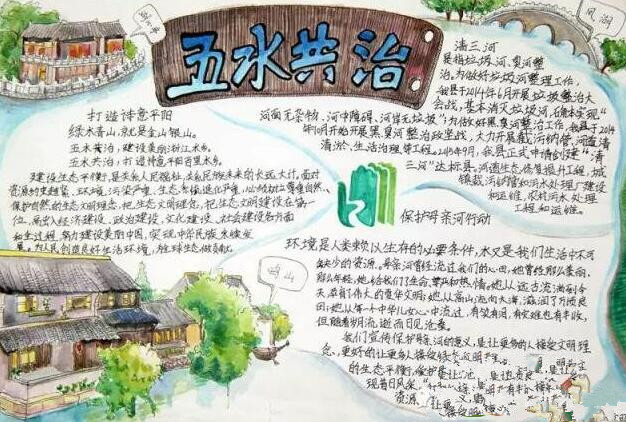 五水共治
凤湖
打造诗意平阳
绿水青山,就是金山银山。
五水共治,建设美丽浙江水乡。
五水共治,打造诗意平阳百里水乡。
建设生态平衡,是关系人民福祉,关乎民族未来的长远大计。面对
资源约束趋紧、环境污染严重、生态系统退化严重,心须树立尊重自然、
保护自然的生态文明理念,把生态文明理包,把生态文明建设在第一
位,融入经济建设、政治建设、文化建设、社会建设各方面
和全过程,努力建设美丽中国,实现中华民族永续发
为人民创造良好生活环境,为全球生态做贡献。
清三河
是指垃圾河、黑臭河整
治。为做好垃圾河整理工作,
我县于2014年6月开展垃圾整治大
会战,基本消灭垃圾河,确本实现"
河面无杂物、河中障碍、河岸无垃圾";为做好黑臭河整治工作,我县于2014
年10月开始开展黑臭河整治政坚战,大力开展截污纳管、河道清
清淤、生活治理等工程。2015年9月,我县正式申请创建"清
三河"达标县。河道生态修复提升工程,城
镇截污纳管和污水处理厂建设
和运维,农村污水处理
工程和运维。
保护母亲河行动
环境是人类赖以生存的必要条件,水又是我们生活中不可
缺少的资源。母亲河曾经流过我们的心田,她曾经那么美丽、
那么年轻,她给我们了生命、尊严和热情。她从远古流淌到今
天,养育了伟大的青华文明,她从高山流向大海,滋润了万顷良
田;她从每一个中华儿女心中流过,有欢有泪,有灾难也有丰收,
但随着岁月流逝而日见沧桑。
我们宣传保护母亲河的意义,是让更多的人接受文明理
念,更好的让更多人接受绿色文明
的生态平衡,保护母亲
现昔日风采,
资源
崎山